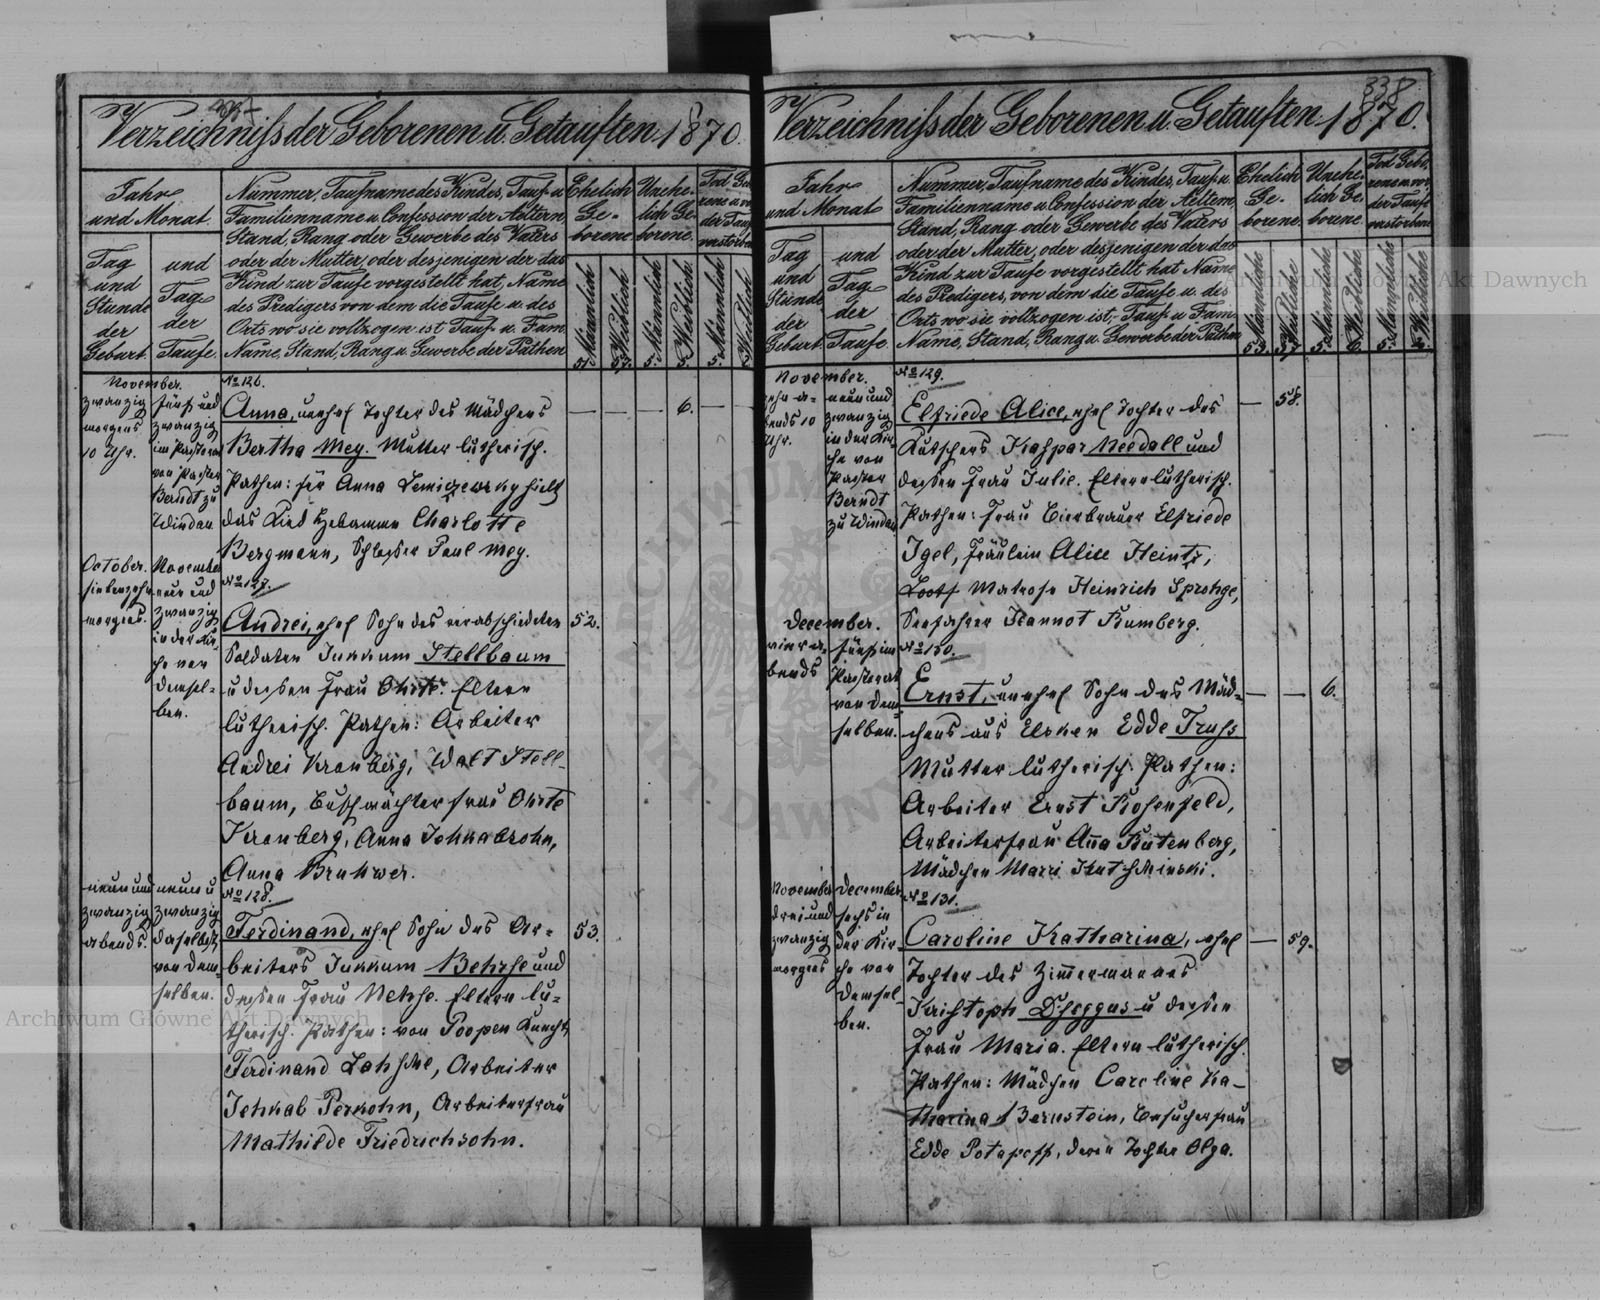 Verzeichniß der Geborenen u. Getauften 1870.
Jahr
und Monat
Tag
und
Stunde
der
Geburt.
und
Tag
der
Taufe.
Nummer, Taufname des Kindes, Tauf- u.
Familienname u. Confession der Aeltern,
Stand, Rang oder Gewerbe des Vaters
oder der Mutter, oder desjenigen der das
Kind zur Taufe vorgestellt hat, Name
des Predigers von dem die Taufe u. des
Orts wo sie vollzogen ist, Tauf- u. Fam.
Name, Stand, Rang u. Gewerbe der Pathen
Ehelich
Ge-
borene
Unehe-
lich Ge-
borene.
Tod Ge-
borene u. vor
der Taufe
verstorben
Männlich
Weiblich
Männlich
Weiblich
Männlich
Weiblich
51.
57.
5.
5.
5.
November.
zwanzig
morgens
10 Uhr.
fünf und
zwanzig
im Pastorat
von Pastor
Berndt zu
Windau
No 126.
Anna, unehel Tochter des Mädchens
Bertha Mey. Mutter lutherisch.
Pathen: für Anna hielt
das Kind Hebamme Charlotte
Bergmann, Schlosser Paul Mey.
— — — 6. —
October.
siebenzehn
morgens.
November
neun und
zwanzig
in der Kir-
che von
demsel-
ben.
No 127.
Andrei, ehel Sohn des verabschiedeten
Soldaten Jukkum Stellbaum
u dessen Frau Ohrte. Eltern
lutherisch. Pathen: Arbeiter
Andrei Kronberg, Walt Stell-
baum, Buschwächterfrau Ohrte
Kronberg, Anna Jehkabsohn,
Anna Brukwer.
52.
neun und
zwanzig
abends.
neun u
zwanzig
daselbst
von dem-
selben.
No 128.
Ferdinand, ehel Sohn des Ar-
beiters Jukkum Behrse und
dessen Frau Nehse. Eltern lu-
therisch. Pathen: von Poopen Knecht
Ferdinand, Arbeiter
Jehkab Perkohn, Arbeiterfrau
Mathilde Friedrichsohn.
53.
338
Verzeichniß der Geborenen u. Getauften 1870.
Jahr
und Monat
Tag
und
Stunde
der
Geburt.
und
Tag
der
Taufe
Nummer, Taufname des Kindes, Tauf- u.
Familienname u. Confession der Aeltern,
Stand, Rang oder Gewerbe des Vaters
oder der Mutter, oder desjenigen der das
Kind zur Taufe vorgestellt hat, Name
des Predigers, von dem die Taufe u. des
Orts wo sie vollzogen ist, Tauf- u. Fam.
Name, Stand, Rang u. Gewerbe der Pathen
Ehelich
Ge-
borene.
Unehe-
lich Ge-
borene.
Tod Gebo-
rene u. vor
der Taufe
verstorben
Männliche
Weibliche
Männliche
Weibliche
Männliche
Weibliche
53.
57.
5.
6.
5.
November.
zehn a-
bends 10
Uhr.
neun und
zwanzig
in der Kir-
che von
Pastor
Berndt
zu Windau
No 129.
Elfriede Alice, ehel Tochter des
Kutschers Kaspar Needall und
dessen Frau Julie. Eltern lutherisch.
Pathen: Frau Bierbrauer Elfriede
Igel, Fräulein Alice Heintz,
Loots Matrose Heinrich Sprohge,
Seefahrer Jeannot Rumberg.
— 58.
December.
vier a-
bends
fünf im
Pastorat
von dem-
selben.
No 130.
Ernst, unehel Sohn des Mäd-
chens aus Elsken Edde Truhs
Mutter lutherisch. Pathen:
Arbeiter Ernst Rosenfeld,
Arbeiterfrau Anna Rutenberg,
Mädchen Marri.
— — 6.
November
drei und
zwanzig
morgens
December
sechs in
der Kir-
che von
demsel-
ben.
No 131.
Caroline Katharina, ehel
Tochter des Zimmermannes
Kristoph Dseggus u dessen
Frau Maria. Eltern lutherisch.
Pathen: Mädchen Caroline Ka-
tharina Bernstein, Besucherfrau
Edde Potapoff, deren Tochter Olga.
— 59.
Archiwum Główne Akt Dawnych
Archiwum Główne Akt Dawnych